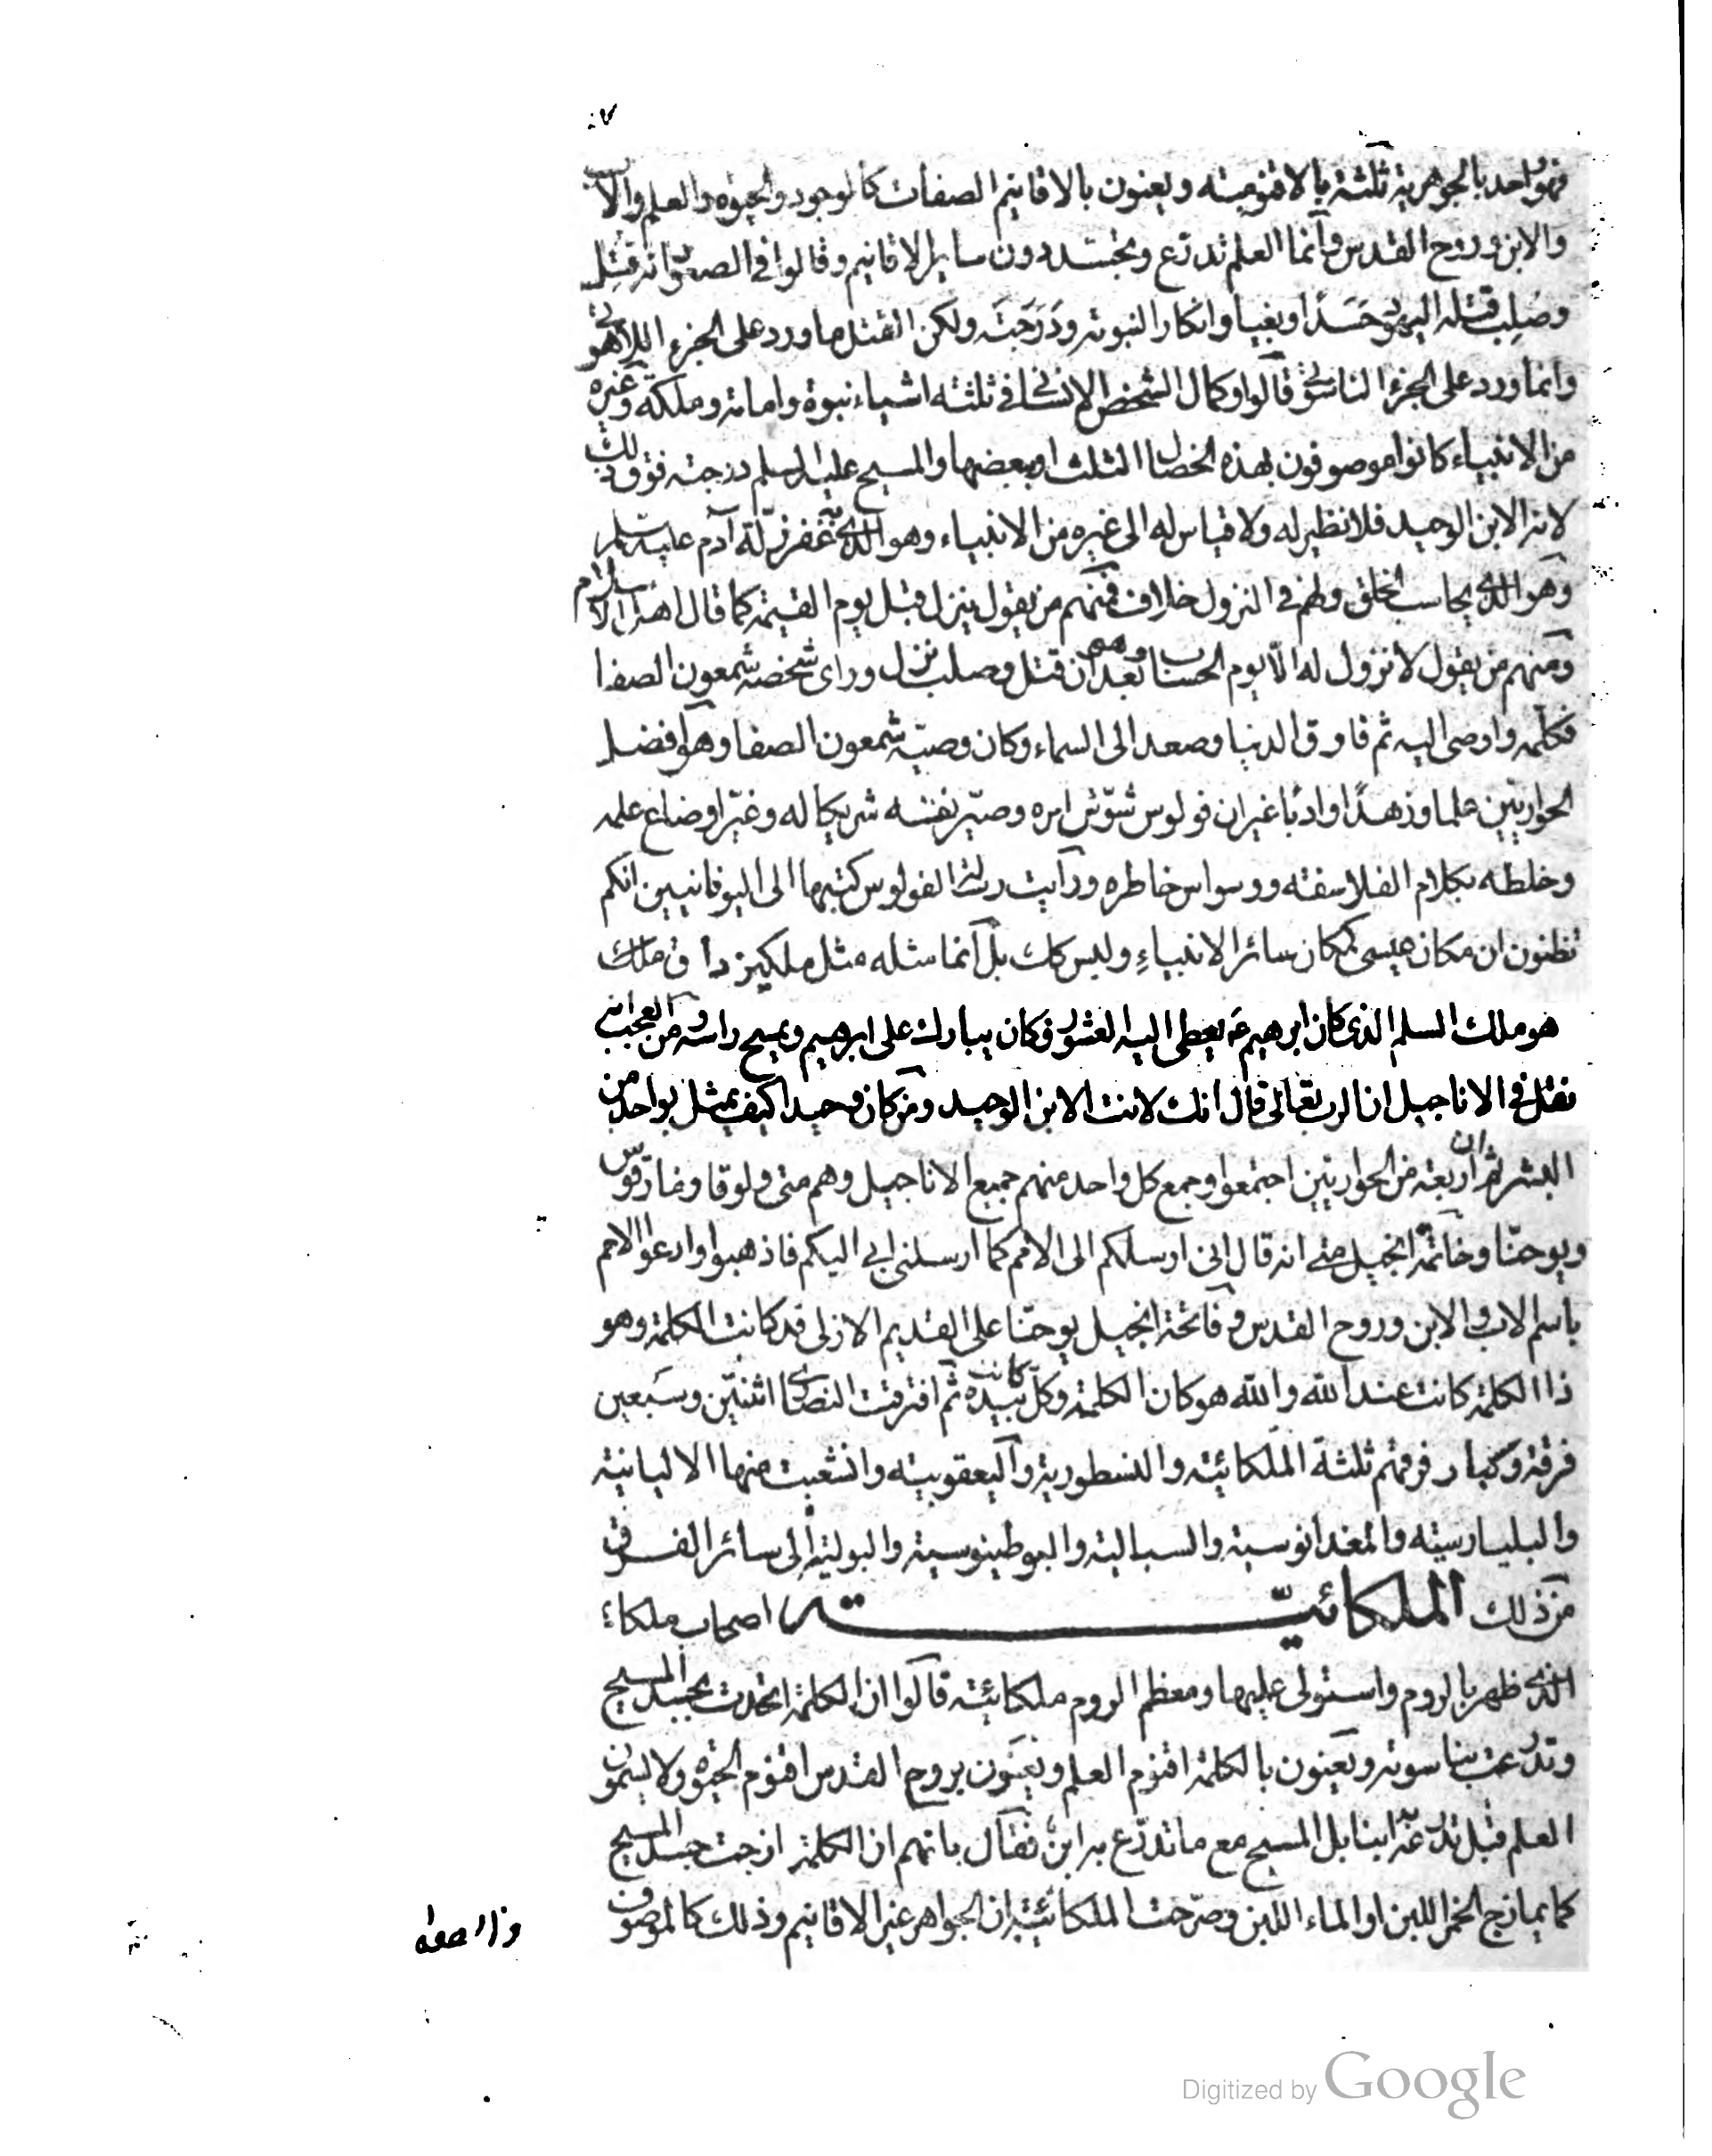 ٧٠
فهو واحد بالجوهرية ثلثة بالاقنومية ويعنون بالاقانيم الصفات كالوجود والحيوة والعلم والاب
والابن وروح القدس وانما العلم تدرع وتجسد دون ساير الاقانيم وقالوا في الصعود انه قتل
وصلب قتله اليهود حسدا وبغيا وانكارا لنبوته ودرجته ولكن القتل ما ورد على الجزء اللاهوتي
وانما ورد على الجزء الناسوتي قالوا وكمال الشخص الانساني في ثلثة اشياء نبوة وامامة وملكة وغيره
من الانبياء كانوا موصوفون بهذه الخصال الثلث او ببعضها والمسيح عليه السلم درجته فوق ذلك
لانه الابن الوحيد فلا نظير له ولا قياس له الى غيره من الانبياء وهو الذي به غفر زلة آدم عليه السلم
وهو الذي يحاسب الخلق ولهم في النزول خلاف فمنهم من يقول ينزل قبل يوم القيمة كما قال اهل الاسلام
ومنهم من يقول لا نزول له الا يوم الحساب وهو بعد ان قتل وصلب نزل وراى شخصه شمعون الصفا
فكلمه واوصى اليه ثم فارق الدنيا وصعد الى السماء وكان وصيه شمعون الصفا وهو افضل
الحواريين علما وزهدا وادبا غير ان فولوس شوش امره وصير نفسه شريكا له وغير اوضاع علمه
وخلطه بكلام الفلاسفة ووسواس خاطره ورايت رسالة لفولوس كتبها الى اليونانيين انكم
تظنون ان مكان عيسى كمكان سائر الانبياء وليس كك بل انما مثله مثل ملكيزداق ملك
هو ملك السلم الذي كان ابرهيم ع يعطى اليه العشور فكان يبارك على ابرهيم ويمسح راسه ومن العجب انه
نقل في الاناجيل ان الرب تعالى قال انك لانت الابن الوحيد ومن كان وحيدا كيف يمثل بواحد من
البشر ثم ان اربعة من الحواريين اجتمعوا وجمع كل واحد منهم جميع الاناجيل وهم متى ولوقا ومارقوس
ويوحنا وخاتمة انجيل متى انه قال اني ارسلكم الى الامم كما ارسلني ابي اليكم فاذهبوا وادعوا الامم
باسم الاب والابن وروح القدس وفاتحة انجيل يوحنا على القديم الازلي قد كانت الكلمة وهو
ذا الكلمة كانت عند الله والله هو كان الكلمة وكل كانت بيده ثم افترقت النصارى اثنتين وسبعين
فرقة وكبار فرقهم ثلثة الملكائية والنسطورية واليعقوبية وانشعبت منها الاليانية
والبليارسية والمغدانوسية والسبالية والبوطينوسية والبولية الى سائر الفرق
من ذلك الملكائية اصحاب ملكاء
الذي ظهر بالروم واستولى عليها ومعظم الروم ملكائية قالوا ان الكلمة اتحدت بجسد المسيح
وتدرعت بناسوته ويعنون بالكلمة اقنوم العلم ويعنون بروح القدس اقنوم الحيوة ولا يسمون
العلم قبل تدرعه ابنا بل المسيح مع ما تدرع به ابن فقال بانهم ان الكلمة ازجت جسد المسيح
كما يمازج الخمر اللبن او الماء اللبن وصرحت الملكائية بان الجواهر غير الاقانيم وذلك كالموصوف
والصفة
Digitized by Google